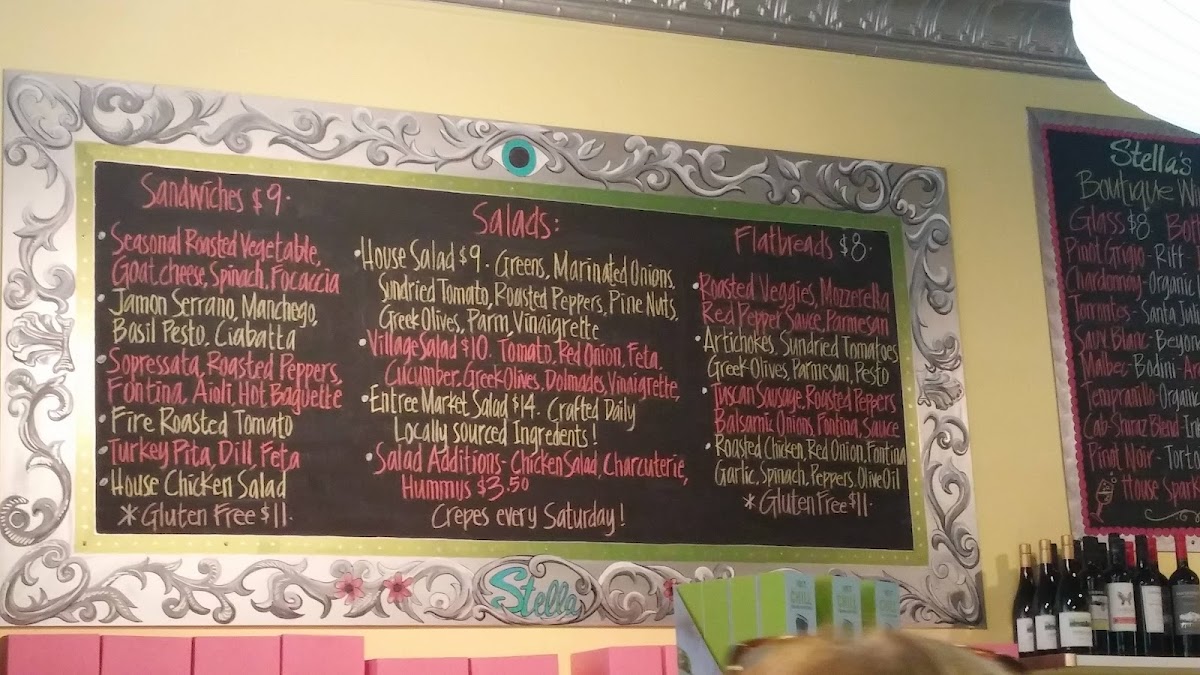 Sandwiches $9.
• Seasonal Roasted Vegetable,
Goat cheese, Spinach, Focaccia
• Jamon Serrano, Manchego,
Basil Pesto, Ciabatta
• Sopressata, Roasted Peppers,
Fontina, Aioli, Hot Baguette
• Fire Roasted Tomato
• Turkey Pita, Dill, Feta
• House Chicken Salad
* Gluten Free $11.
Salads:
• House Salad $9. Greens, Marinated Onions,
Sundried Tomato, Roasted Peppers, Pine Nuts,
Greek Olives, Parm, Vinaigrette
• Village Salad $10. Tomato, Red Onion, Feta,
Cucumber, Greek Olives, Dolmades, Vinaigrette,
• Entree Market Salad $14. Crafted Daily
Locally sourced Ingredents!
• Salad Additions - Chicken Salad, Charcuterie,
Hummus $3.50
Crepes every Saturday!
Flatbreads $8.
• Roasted Veggies, Mozzerella
Red Pepper Sauce, Parmesan
• Artichokes, Sundried Tomatoes
Greek Olives, Parmesan, Pesto
• Tuscan Sausage, Roasted Peppers
Balsamic Onions, Fontina, Sauce
• Roasted Chicken, Red Onion, Fontina
Garlic, Spinach, Peppers, Olive Oil
* Gluten Free $11.
Stella
Stella's
Boutique
Glass $8
Pinot Grigio - Riff
Chardonnay - Organic
Torrontes - Santa
Sauv Blanc -
Malbec - Bodini -
Tempranillo - Organic
Cab-Shiraz Blend -
Pinot Noir -
House
CHILL